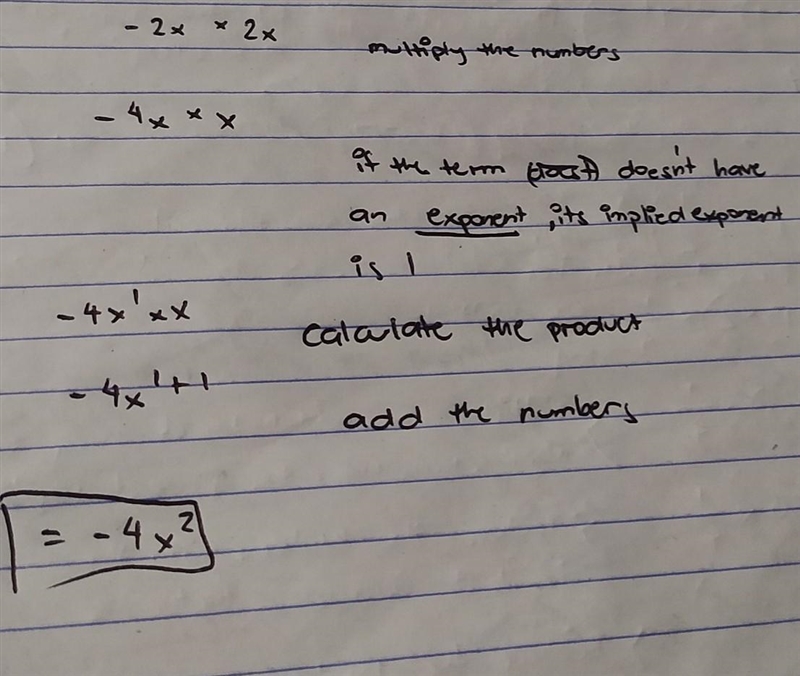 - 2x × 2x
multiply the numbers
- 4x × x
if the term (doest) doesn't have
an exponent, its implied exponent
is 1
- 4x¹ × x
calculate the product
- 4x¹⁺¹
add the numbers
= - 4x²